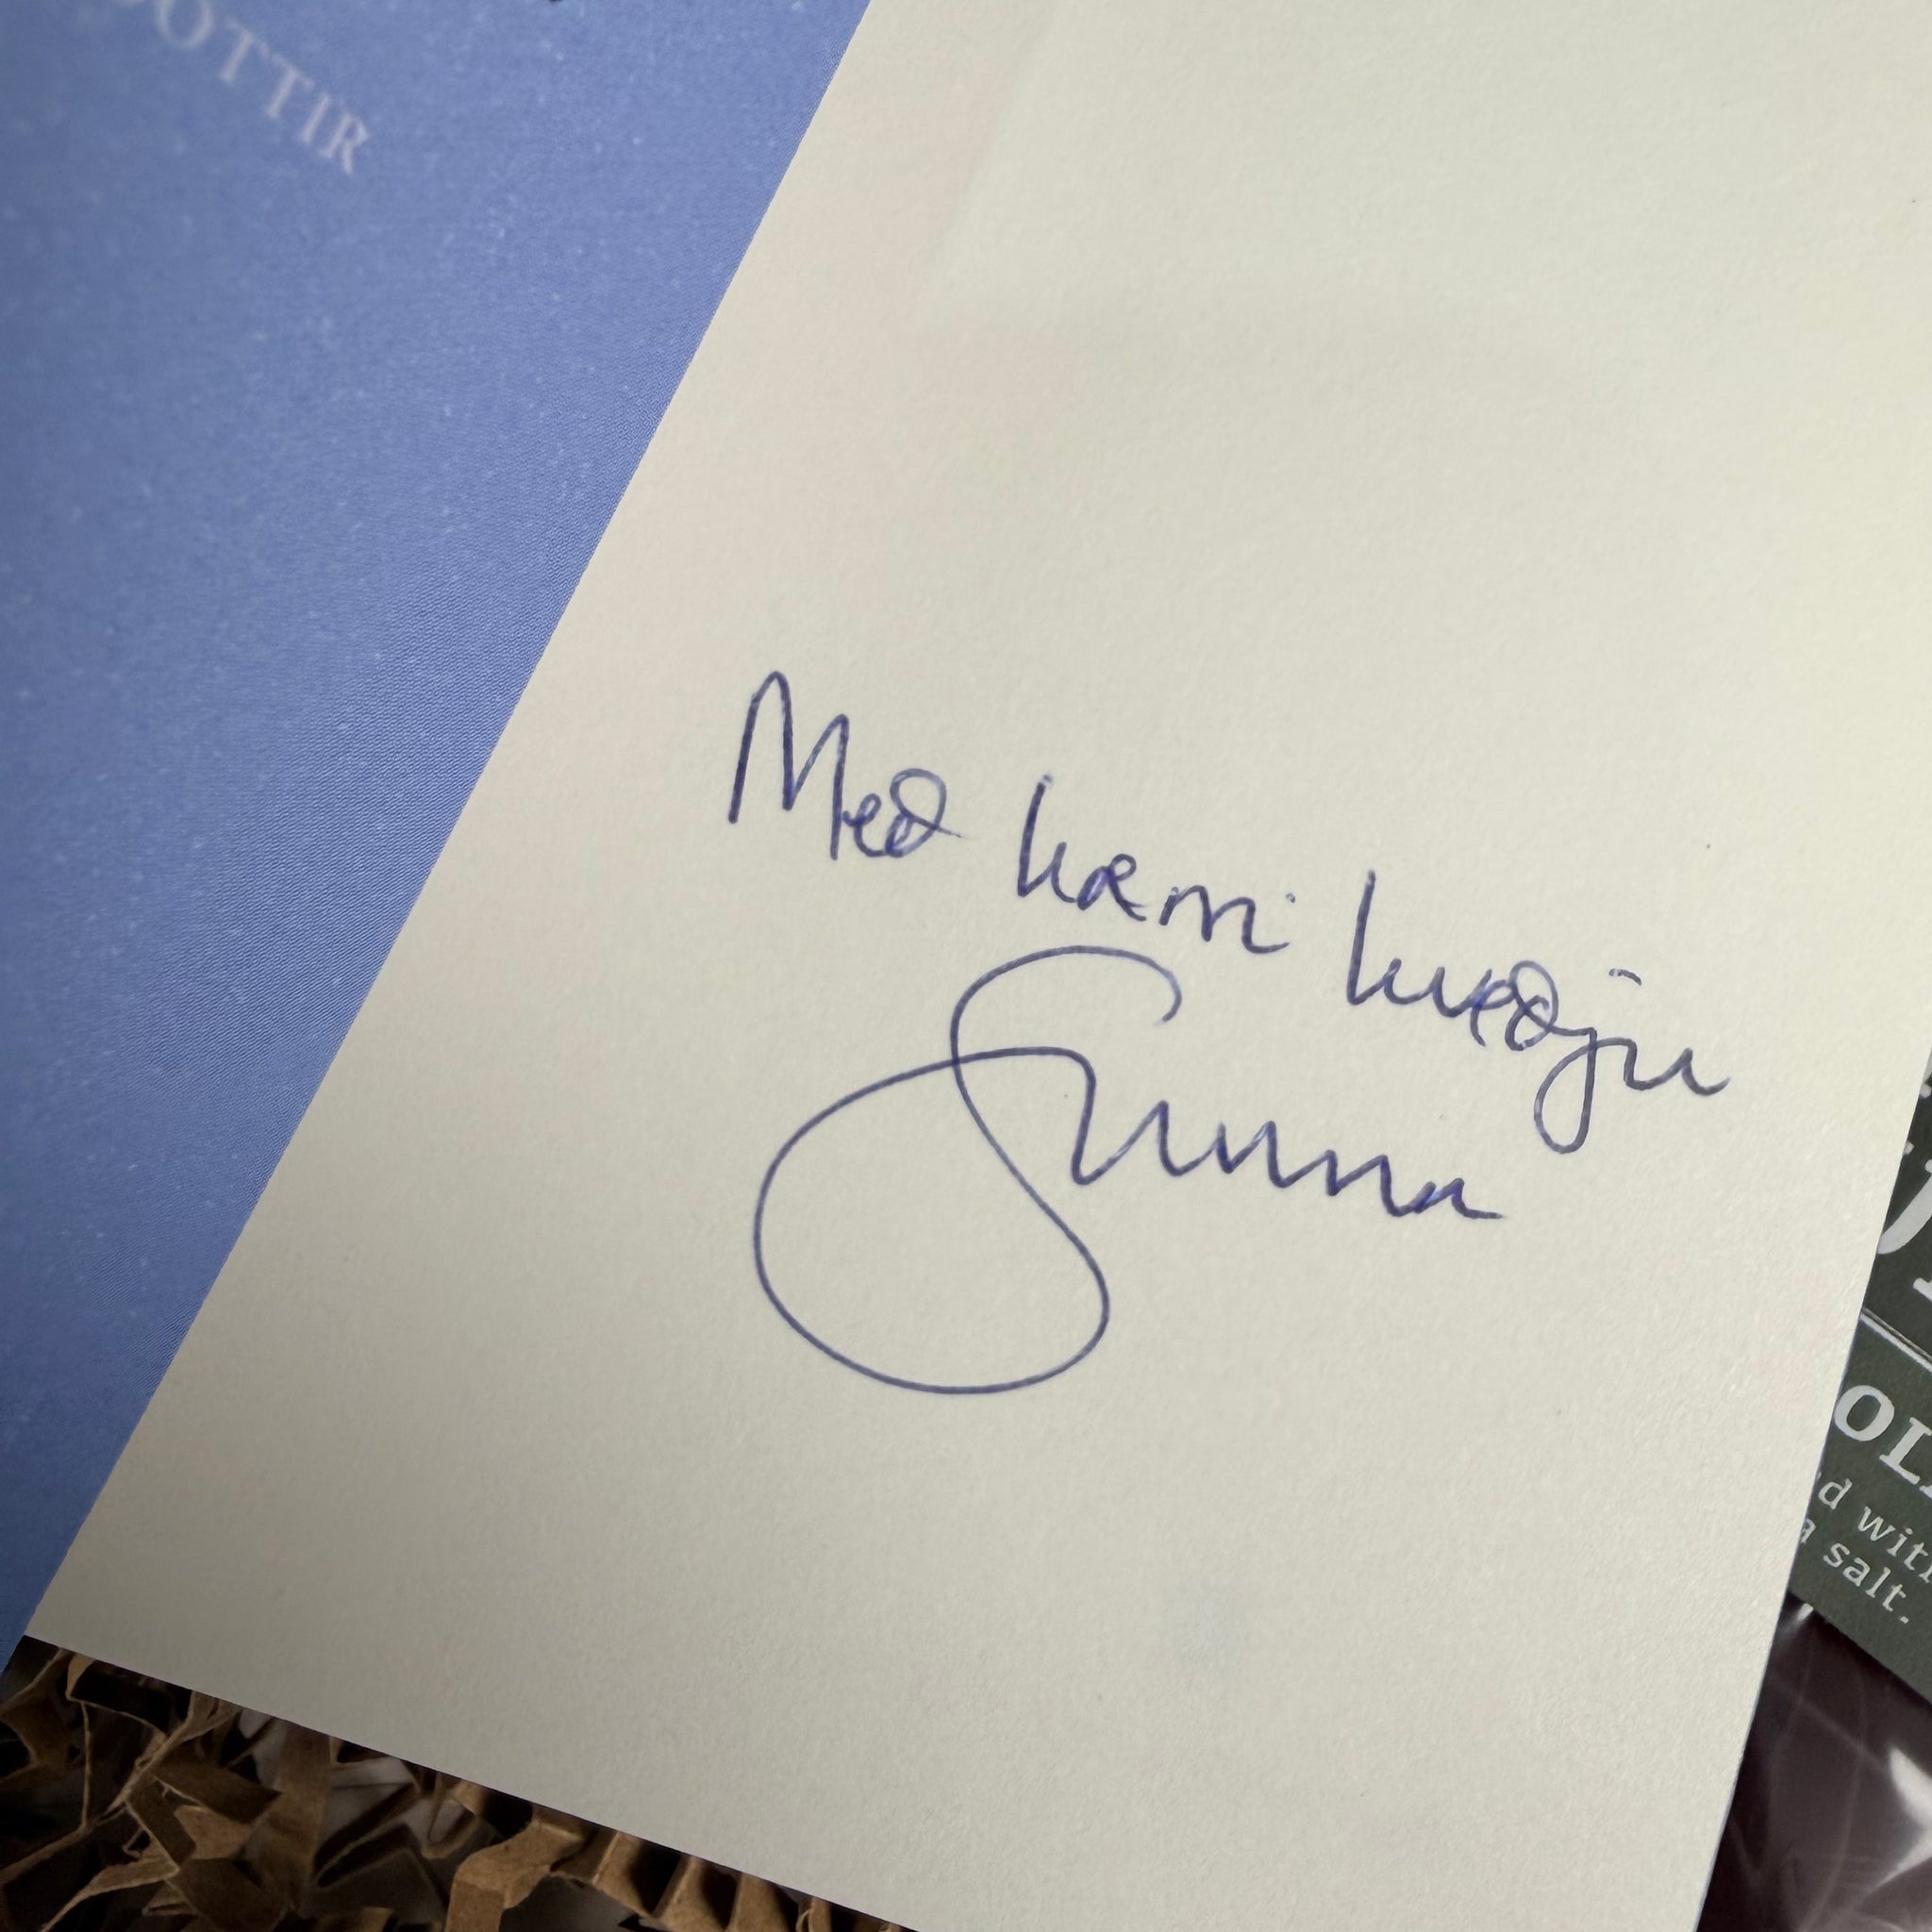 DOTTIR
Með kærri kveðju
Sunna
OLI
d with
a salt.